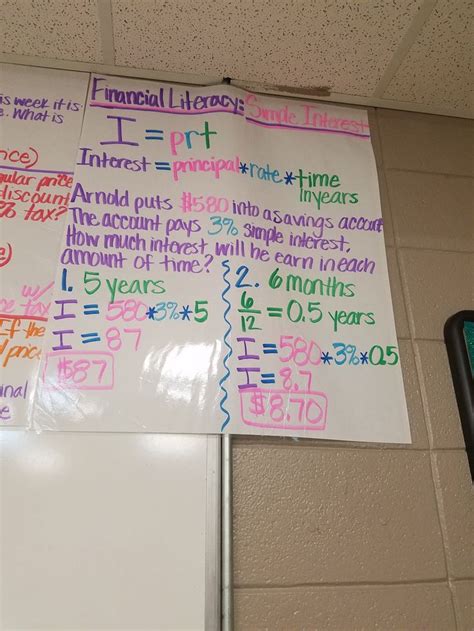 is week it is
e. What is
nce)
gular price
discount
% tax?
e)
w/
e tax
If the
d price
inal
e
Financial Literacy: Simple Interest
I = prt
Interest = principal*rate*time
in years
Arnold puts $580 into a savings account.
The account pays 3% simple interest.
How much interest will be earn in each
amount of time?
1. 5 years
I = 580*3%*5
I = 87
$87
2. 6 months
6/12 = 0.5 years
I = 580*3%*0.5
I = 8.7
$8.70